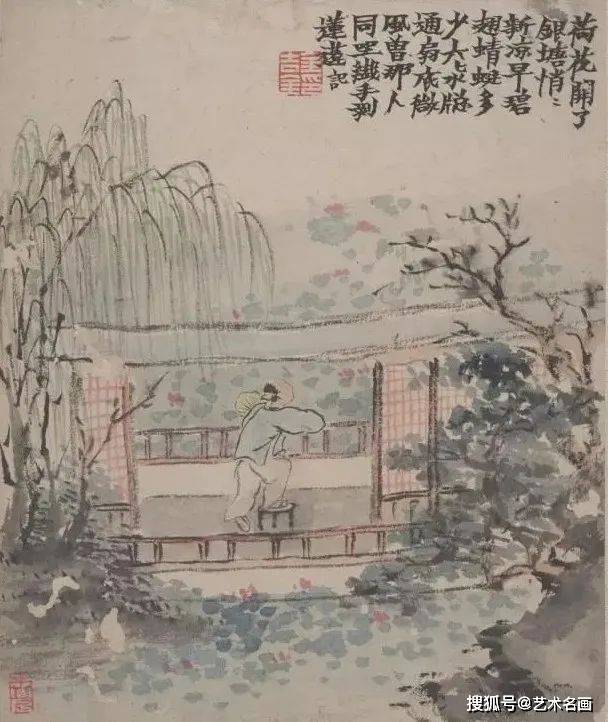 荷花開了
銀塘悄〻
新涼早碧
翅蜻蜓多
少六〻水窗
通扇底微
風曽那人
同坐纖手剥
蓮蓬 記
搜狐号@艺术名画